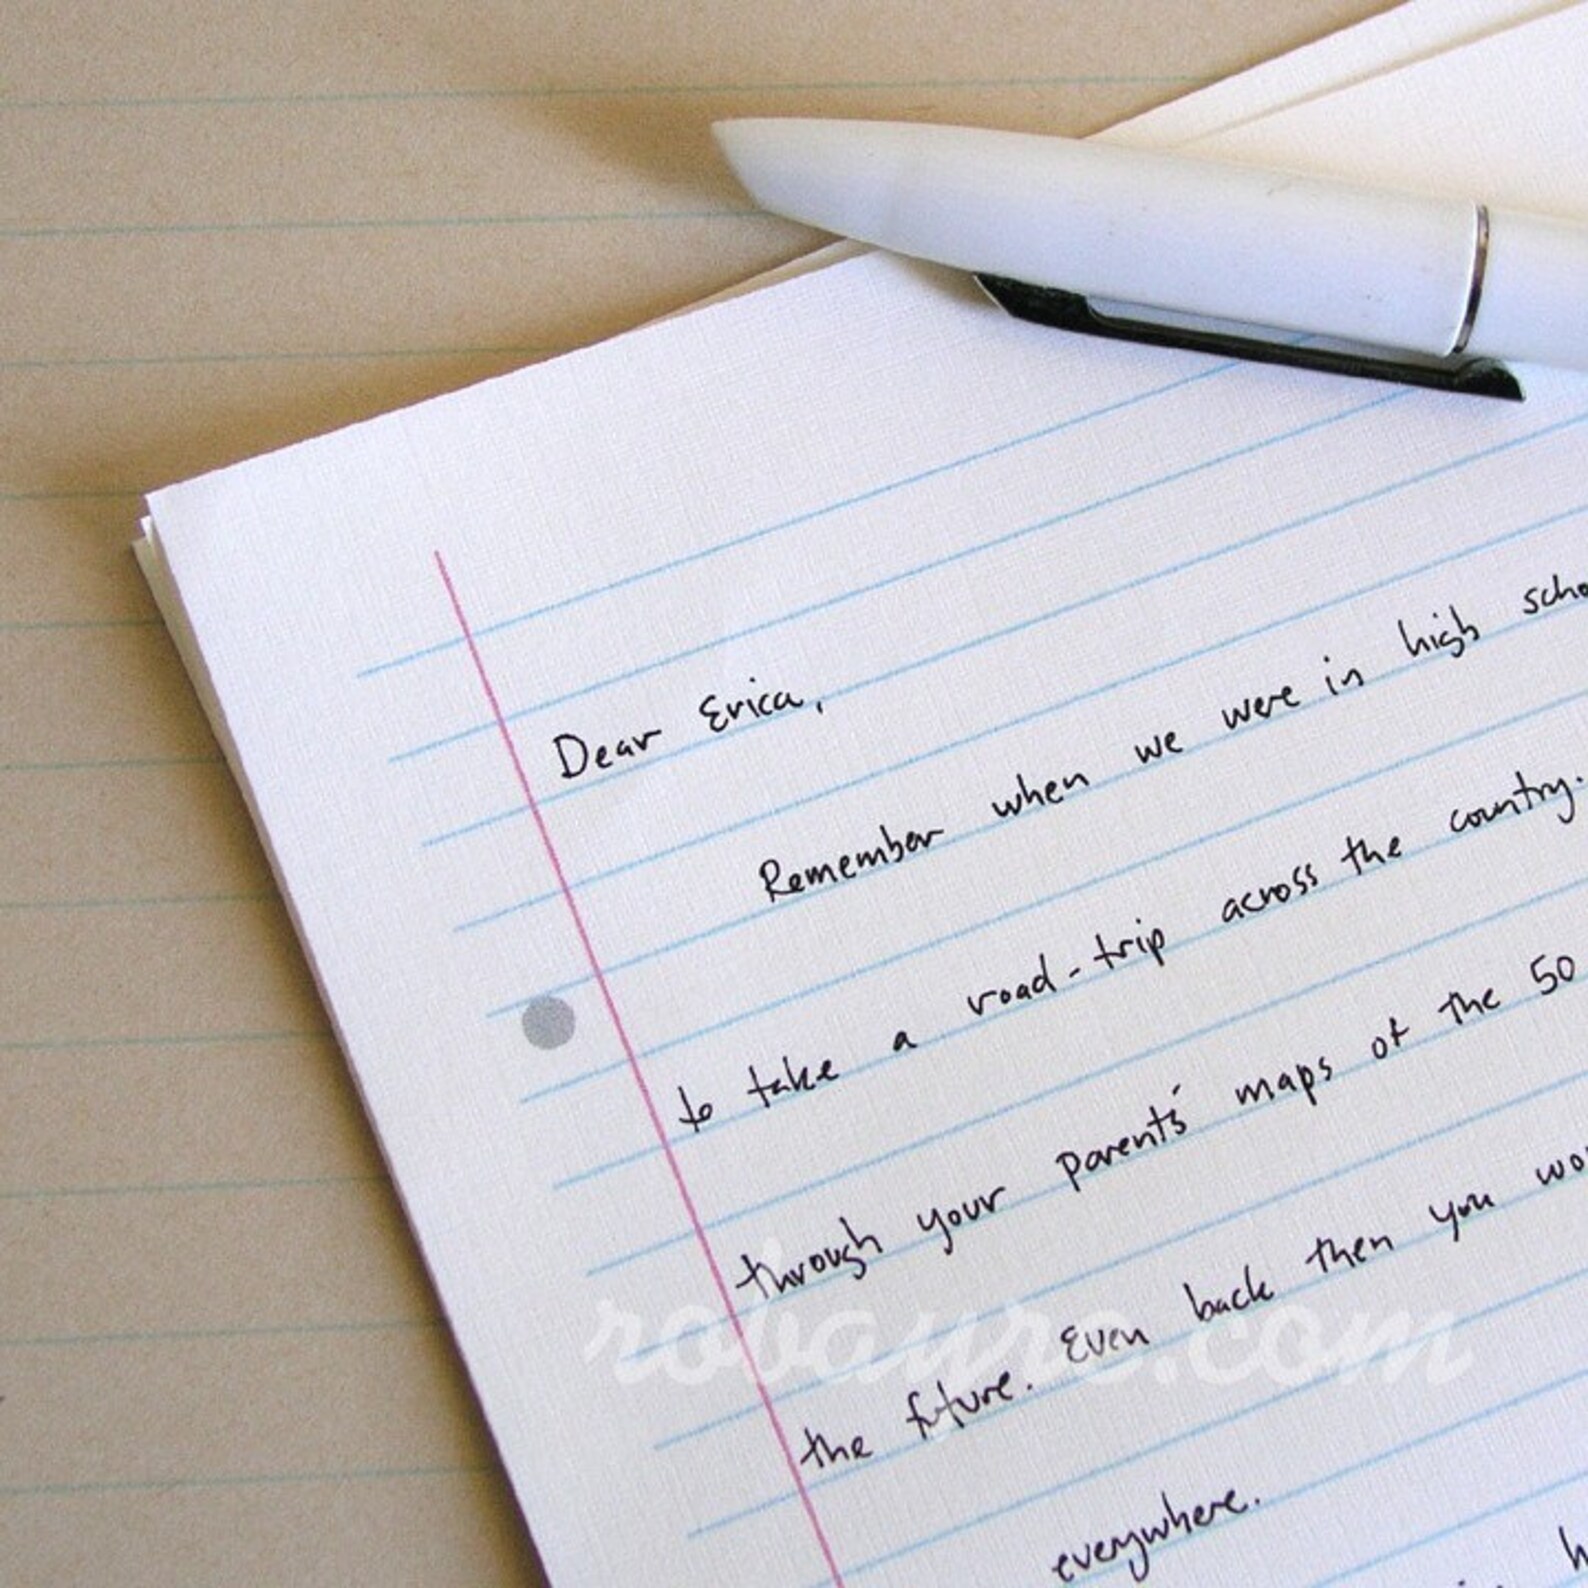 Dear Erica,
Remember when we were in high
to take a road-trip across the country.
through your parents' maps of the 50
the future. Even back then you
everywhere.
robaure.com